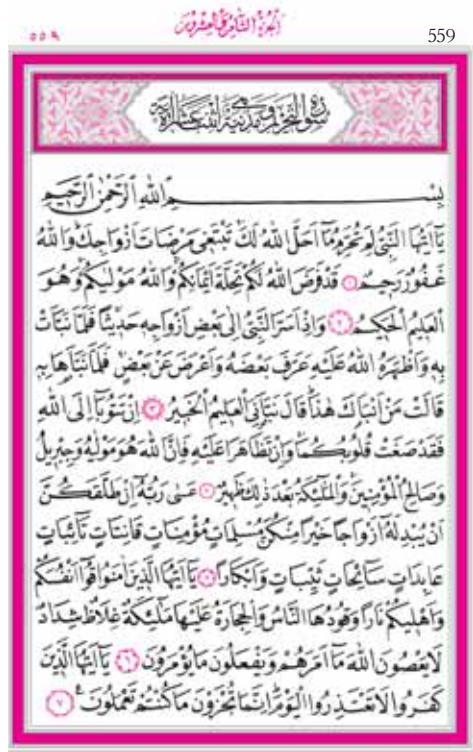 ٥٥٩ الجزء الثامن والعشرون 559
سورة التحريم وهي مدنية اثنتا عشرة آية
بِسْمِ اللهِ الرَّحْمٰنِ الرَّحِيمِ
يَٓا اَيُّهَا النَّبِيُّ لِمَ تُحَرِّمُ مَٓا اَحَلَّ اللهُ لَكَ تَبْتَغِي مَرْضَاتَ اَزْوَاجِكَ وَاللهُ
غَفُورٌ رَحِيمٌ ﴿١﴾ قَدْ فَرَضَ اللهُ لَكُمْ تَحِلَّةَ اَيْمَانِكُمْ وَاللهُ مَوْلٰيكُمْ وَهُوَ
الْعَلِيمُ الْحَكِيمُ ﴿٢﴾ وَاِذْ اَسَرَّ النَّبِيُّ اِلٰى بَعْضِ اَزْوَاجِهِ حَدِيثًا فَلَمَّا نَبَّاَتْ
بِهِ وَاَظْهَرَهُ اللهُ عَلَيْهِ عَرَّفَ بَعْضَهُ وَاَعْرَضَ عَنْ بَعْضٍ فَلَمَّا نَبَّاَهَا بِهِ
قَالَتْ مَنْ اَنْبَاَكَ هٰذَا قَالَ نَبَّاَنِيَ الْعَلِيمُ الْخَبِيرُ ﴿٣﴾ اِنْ تَتُوبَٓا اِلَى اللهِ
فَقَدْ صَغَتْ قُلُوبُكُمَا وَاِنْ تَظَاهَرَا عَلَيْهِ فَاِنَّ اللهَ هُوَ مَوْلٰيهُ وَجِبْرِيلُ
وَصَالِحُ الْمُؤْمِنِينَ وَالْمَلٰٓئِكَةُ بَعْدَ ذٰلِكَ ظَهِيرٌ ﴿٤﴾ عَسٰى رَبُّهُٓ اِنْ طَلَّقَكُنَّ
اَنْ يُبْدِلَهُٓ اَزْوَاجًا خَيْرًا مِنْكُنَّ مُسْلِمَاتٍ مُؤْمِنَاتٍ قَانِتَاتٍ تَٓائِبَاتٍ
عَابِدَاتٍ سَٓائِحَاتٍ ثَيِّبَاتٍ وَاَبْكَارًا ﴿٥﴾ يَٓا اَيُّهَا الَّذِينَ اٰمَنُوا قُٓوا اَنْفُسَكُمْ
وَاَهْلِيكُمْ نَارًا وَقُودُهَا النَّاسُ وَالْحِجَارَةُ عَلَيْهَا مَلٰٓئِكَةٌ غِلَاظٌ شِدَادٌ
لَا يَعْصُونَ اللهَ مَٓا اَمَرَهُمْ وَيَفْعَلُونَ مَا يُؤْمَرُونَ ﴿٦﴾ يَٓا اَيُّهَا الَّذِينَ
كَفَرُوا لَا تَعْتَذِرُوا الْيَوْمَ اِنَّمَا تُجْزَوْنَ مَا كُنْتُمْ تَعْمَلُونَ ﴿٧﴾